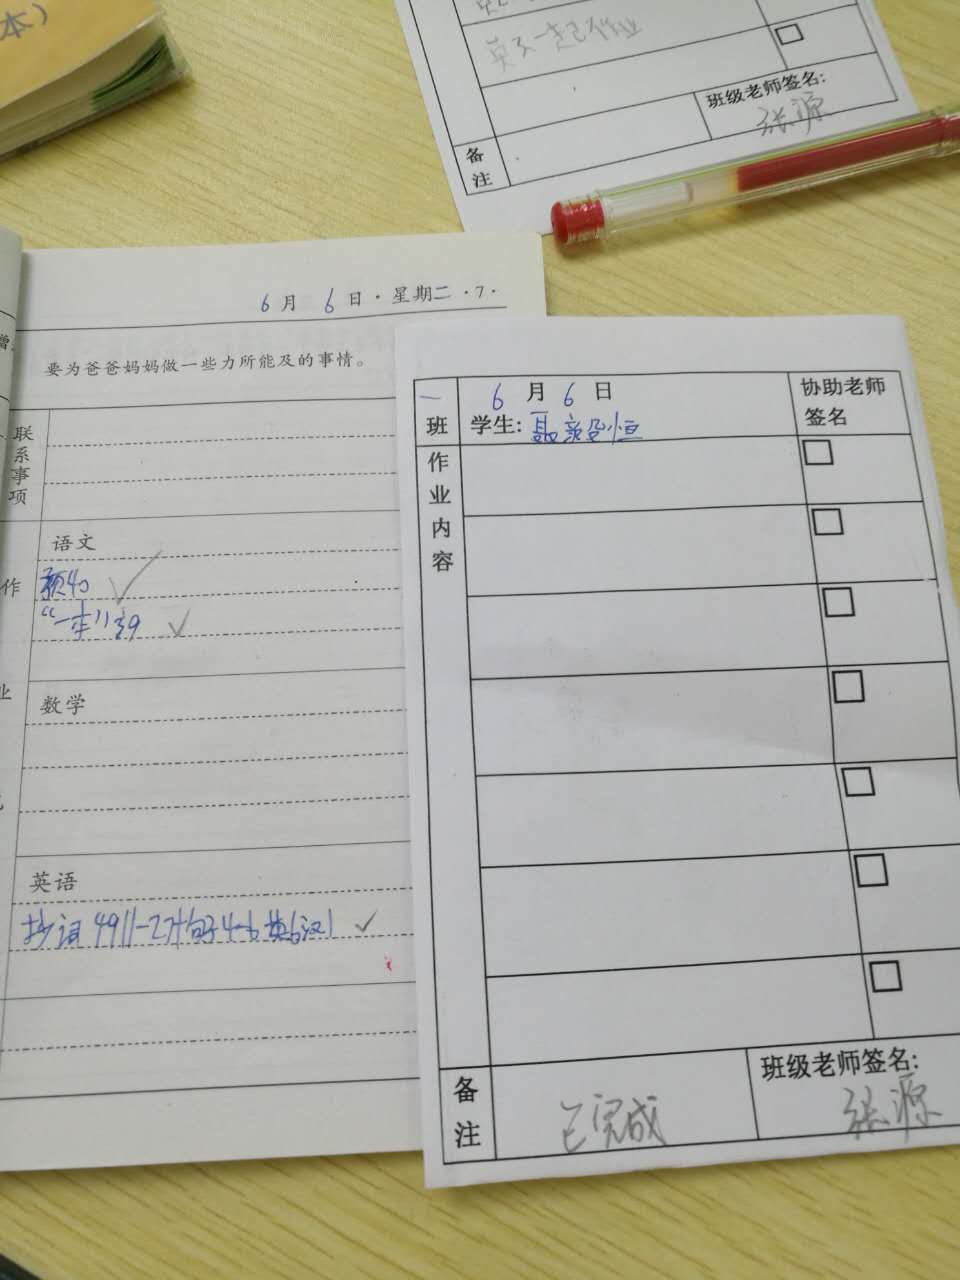 本）
英天一起作业
班级老师签名:
张源
备注
6月6日·星期二·7·
要为爸爸妈妈做一些力所能及的事情。
联系事项
语文
预习
“一本”
数学
英语
抄词 4911-2
作
业
一班
6月6日
学生: 聂毅恒
协助老师签名
作业内容
备注
已完成
班级老师签名:
张源